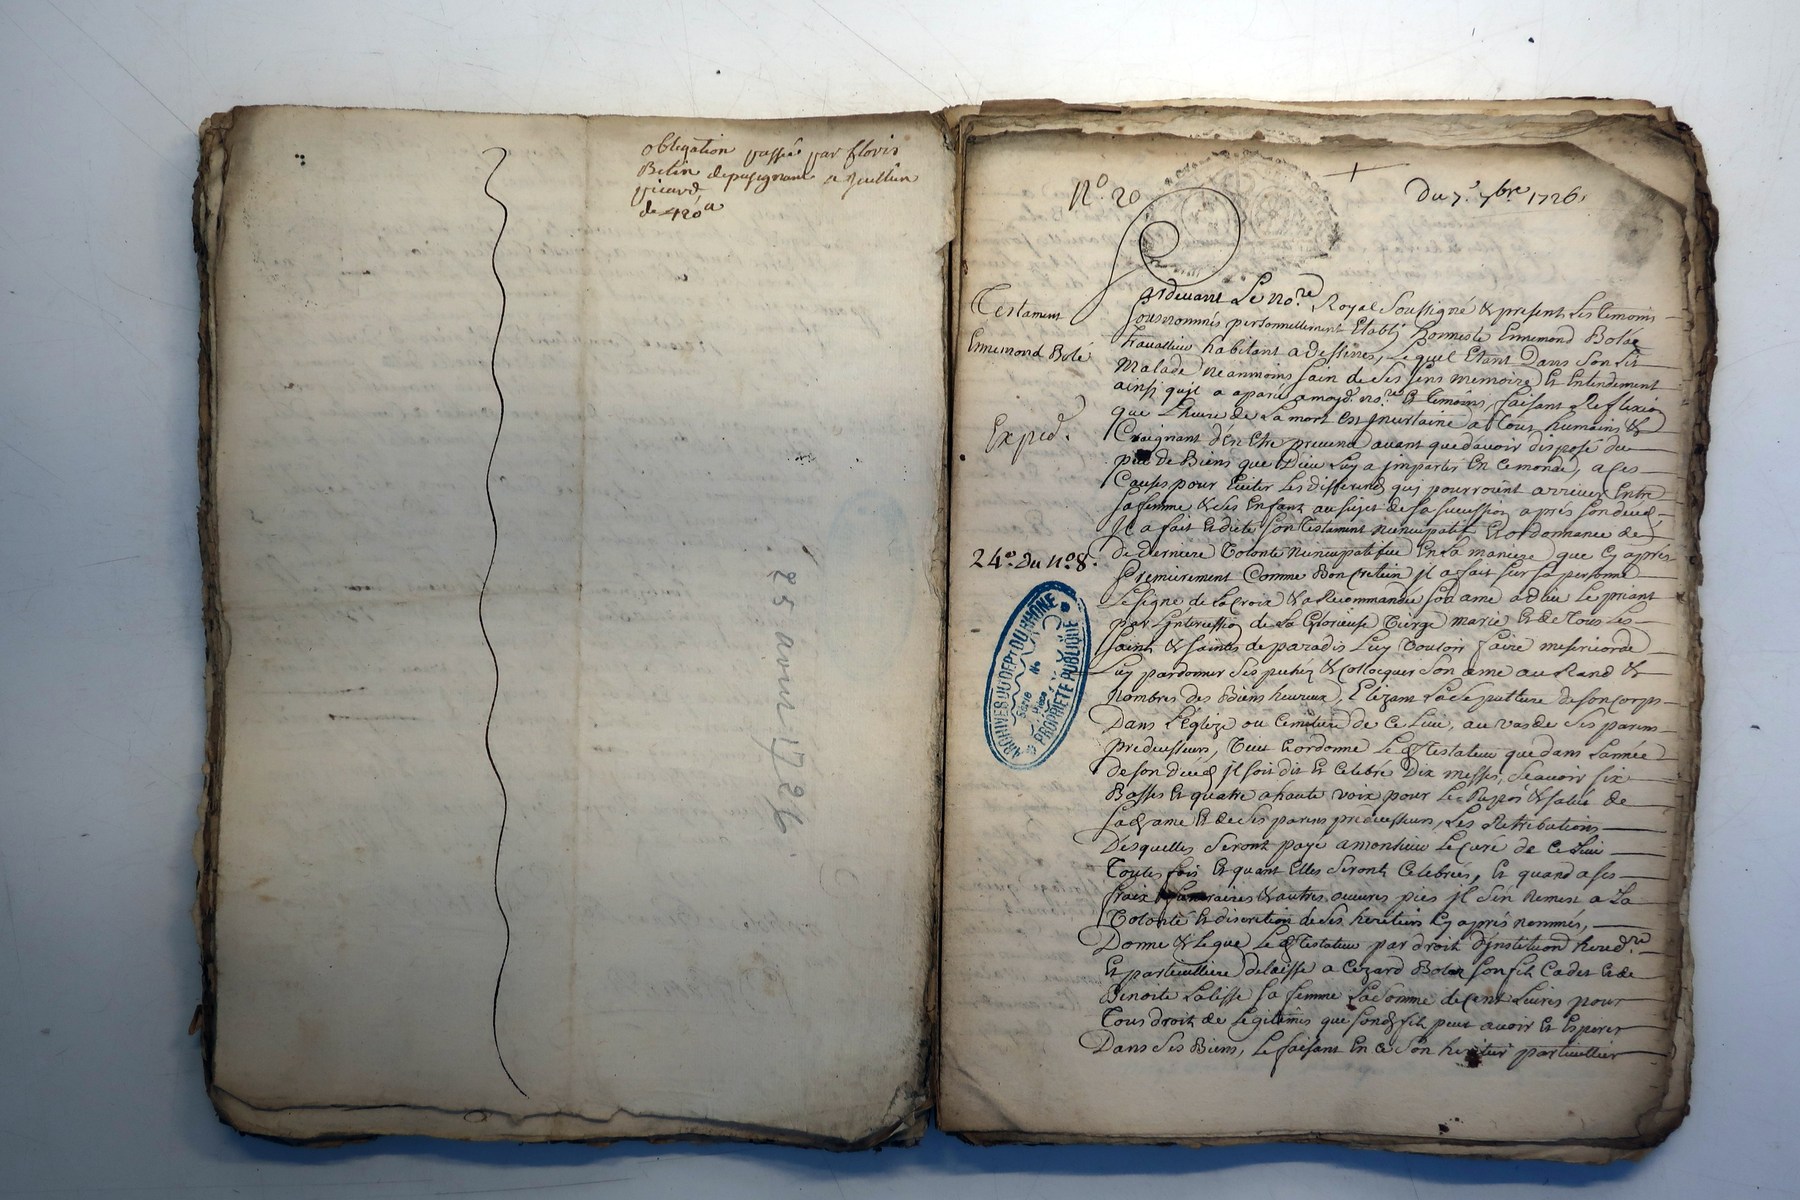 obligation passée par floris
Belin depusignant a Jullien
picard
de 420ᵗᵗ
25 avril 1726
N.º 20
Du 7.e 7bre 1726.
Testament
Ennemond Bolé
Exped.
24.e du Nº 8.
ARCHIVES DU DEPT DU RHÔNE
Série
Nº
Pièce
PROPRIÉTÉ PUBLIQUE
Pardevant Le No.re Royal Soussigné & present Les temoins
sousnommés personnellement Etably honneste Ennemond Bolée
travailleur habitant a Dessines, Lequel Etant Dans Son Lit
Malade neanmoins sain de Ses sens memoire Et Entendement
ainsi quil a aparu amoyd. no.re Et temoins, faisant Reflexion
que L'heure de La mort Est jncertaine a Tous humains &
Craignant d'en Etre prevenu avant que d'avoir disposé du
peu de Biens que Dieu Luy a jmpartis En ce monde, a Ces
Causes pour Eviter Les differends quj pourroient arriver Entre
Sa femme & Ses Enfans au sujet de Sa succession aprés son deced,
Jl a fait Et dicté son Testament nuncupatif Et ordonnance de
De derniere Volonté nuncupatifve En La maniere que Cy aprés
Premierement Comme Bon Cretien jl a fait sur Sa personne
Le signe de La Croix & a Recommandée son ame a Dieu Le priant
par L'intercession de La Glorieuse Vierge marie Et de Tous Les
saints & saintes de paradis Luy Vouloir faire misericorde
Luy pardonner Ses pechés & Collocquer Son ame au Rand &
Nombres des Biens heureux, Elizant La Sepulture de son Corps
Dans L'Eglize ou Cemitiere de Ce Lieu, au vas de Ses parens
predecesseurs, Veut Et ordonne Led Testateur que dans L'année
de son deced jl soit dit Et Celebré Dix messes, Sçavoir six
Basses Et quatre a haute voix pour Le Repos & salut de
sad ame Et de Ses parens predecesseurs, Les Retributions
Desquelles Seront payé a monsieur Le Curé de Ce Lieu
Toutes fois Et quant Elles Seront Celebrées, Et quand a Ses
fraix funeraires & autres œuvres pies jl S'en Remest a La
Volonté Et discretion de Ses heretiers Cy aprés nommés,
Donne & Legue Led Testateur par droit d'jnstitution hered.re
Et particulliere delaisse a Cezard Bolée son fils Cadet Et de
Benoite Sa femme La Somme de Cent Livres pour
Tous droit de Legitimes que sond fils peut avoir Et Esperer
Dans Ses Biens, Le faisant En Ce Son heritier particullier